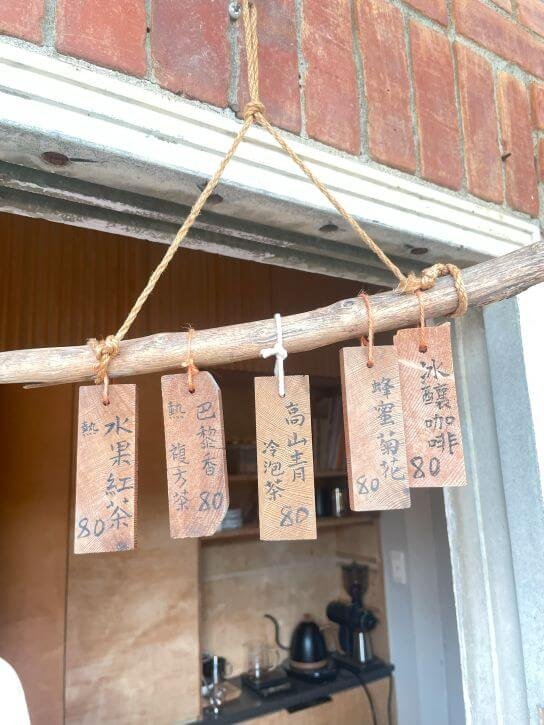 熱
水果紅茶
80
熱
巴黎香
複方茶
80
高山青
冷泡茶
80
蜂蜜菊花
80
冰釀咖啡
80